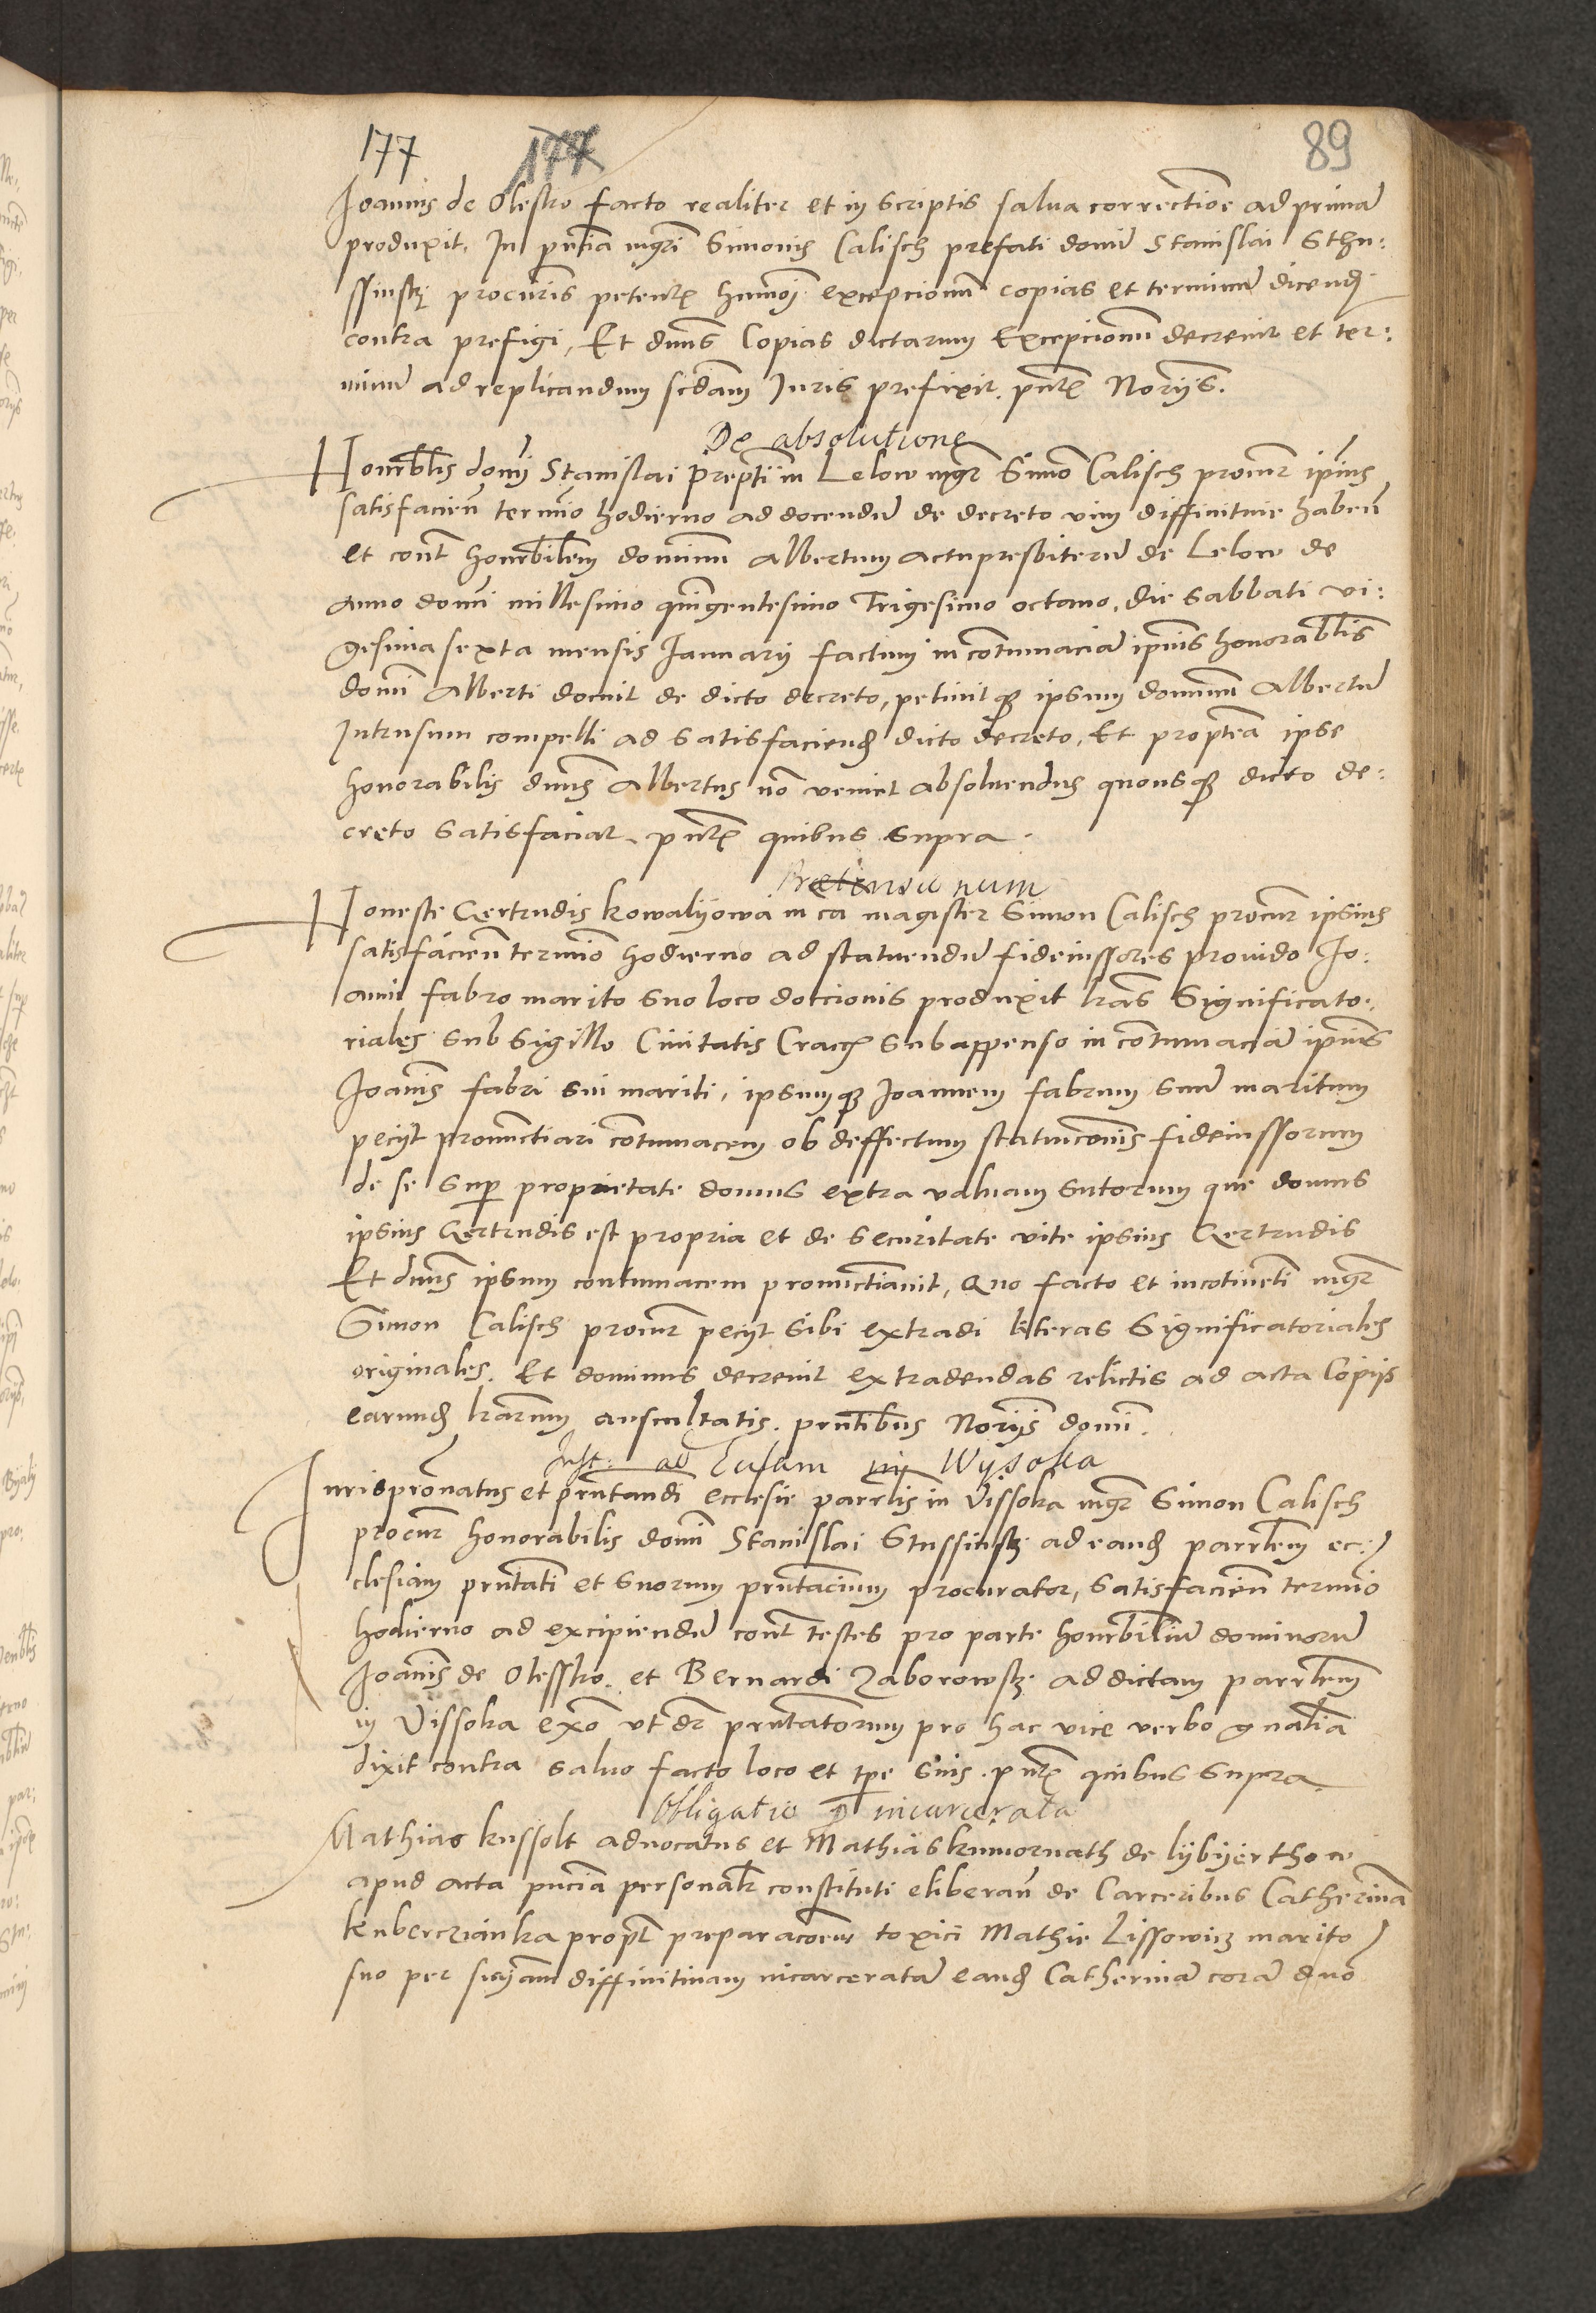 177 177 89
Joannis de Olesko facto realiter et in scriptis salua correctione ad primã
produxit. In pntia mgri Simonis Calisch prefati domini Stanislai Sthu:
ssinskj procuris petentis hmoi excepcionum copias et terminum dicendi
contra prefigi, Et dnus Copias dictarum Excepcionum decreuit et ter:
minum ad replicandum scdam Juris prefixit. pntibus Norijs.
De absolutione
Honrablis domi Stanislai prepti in Lelow mgr Simo Calisch procur ipius
satisfacien termino hodierno ad docendum de decreto vim diffinitiue haben
et cont honrabilem dominum Albertum actu presbiterum de Lelow de
Anno domi millesimo quingentesimo Trigesimo octauo, die sabbati vi:
gesima sexta mensis Januarij factum in contumaciam ipius honorablis
domi Alberti docuit de dicto decreto, petiuitque ipsum dominum Albertum
Intrusum compelli ad satisfaciend dicto decreto, Et proptea ipse
honorabilis dnus Albertus no veniet absoluendus quousque dicto de:
creto satisfaciat. pntibus quibus supra.
Honeste Gertrudis kowalijowa in ca magister Simon Calisch procur ipsius
satisfacien termino hodierno ad statuendum fideiussores prouido Jo:
anni fabro marito suo loco doccionis produxit lras Significato:
riales sub Sigillo Ciuitatis Cracou subappenso in contumaciam ipius
Joannis fabri sui mariti, ipsumque Joannem fabrum suum maritum
pecijt pronunctiari contumacem ob deffectum statucionis fideiussorum
de se super proprietate domus extra valuam sutorum que domus
ipsius Gertrudis est propria et de securitate vite ipsius Gertrudis
Et dnus ipsum contumacem pronunctiauit, Quo facto et incotineti mgr
Simon Calisch procur pecijt sibi extradi literas Significatoriales
originales. Et dominus decreuit extradendas relictis ad acta Copijs
earund lrarum auscultatis. pntibus Norijs domi.
Inst: ad Eccsam in Wysoka
Jurispronatus et pntandi ecclesie parrlis in Vissoka mgr Simon Calisch
procur honorabilis domi Stanislai Stussinskj ad eand parrlem ec:
clesiam pntati et suorum pntancium procurator, satisfacien termino
hodierno ad excipiendum cont testes pro parte honrabilium dominorum
Joannis de Olessko. et Bernardi Zaborowskj ad dictam parrlem
in Vissoka exo vt dr pntatorum pro hac vice verbo gnalia
dixit contra saluo facto loco et tpe suis. pntibus quibus supra
Obligatio p incarcerata
Mathias kussolt aduocatus et Mathias kumornath de lijbijerthow
apud acta pncia personalr constituti eliberan de Carceribus Catherinã
kubercziãnka propt preparacoem toxici Mathie Lissowicz marito
suo per snijam diffinitiuam incarceratam eand Catherinã corã dno